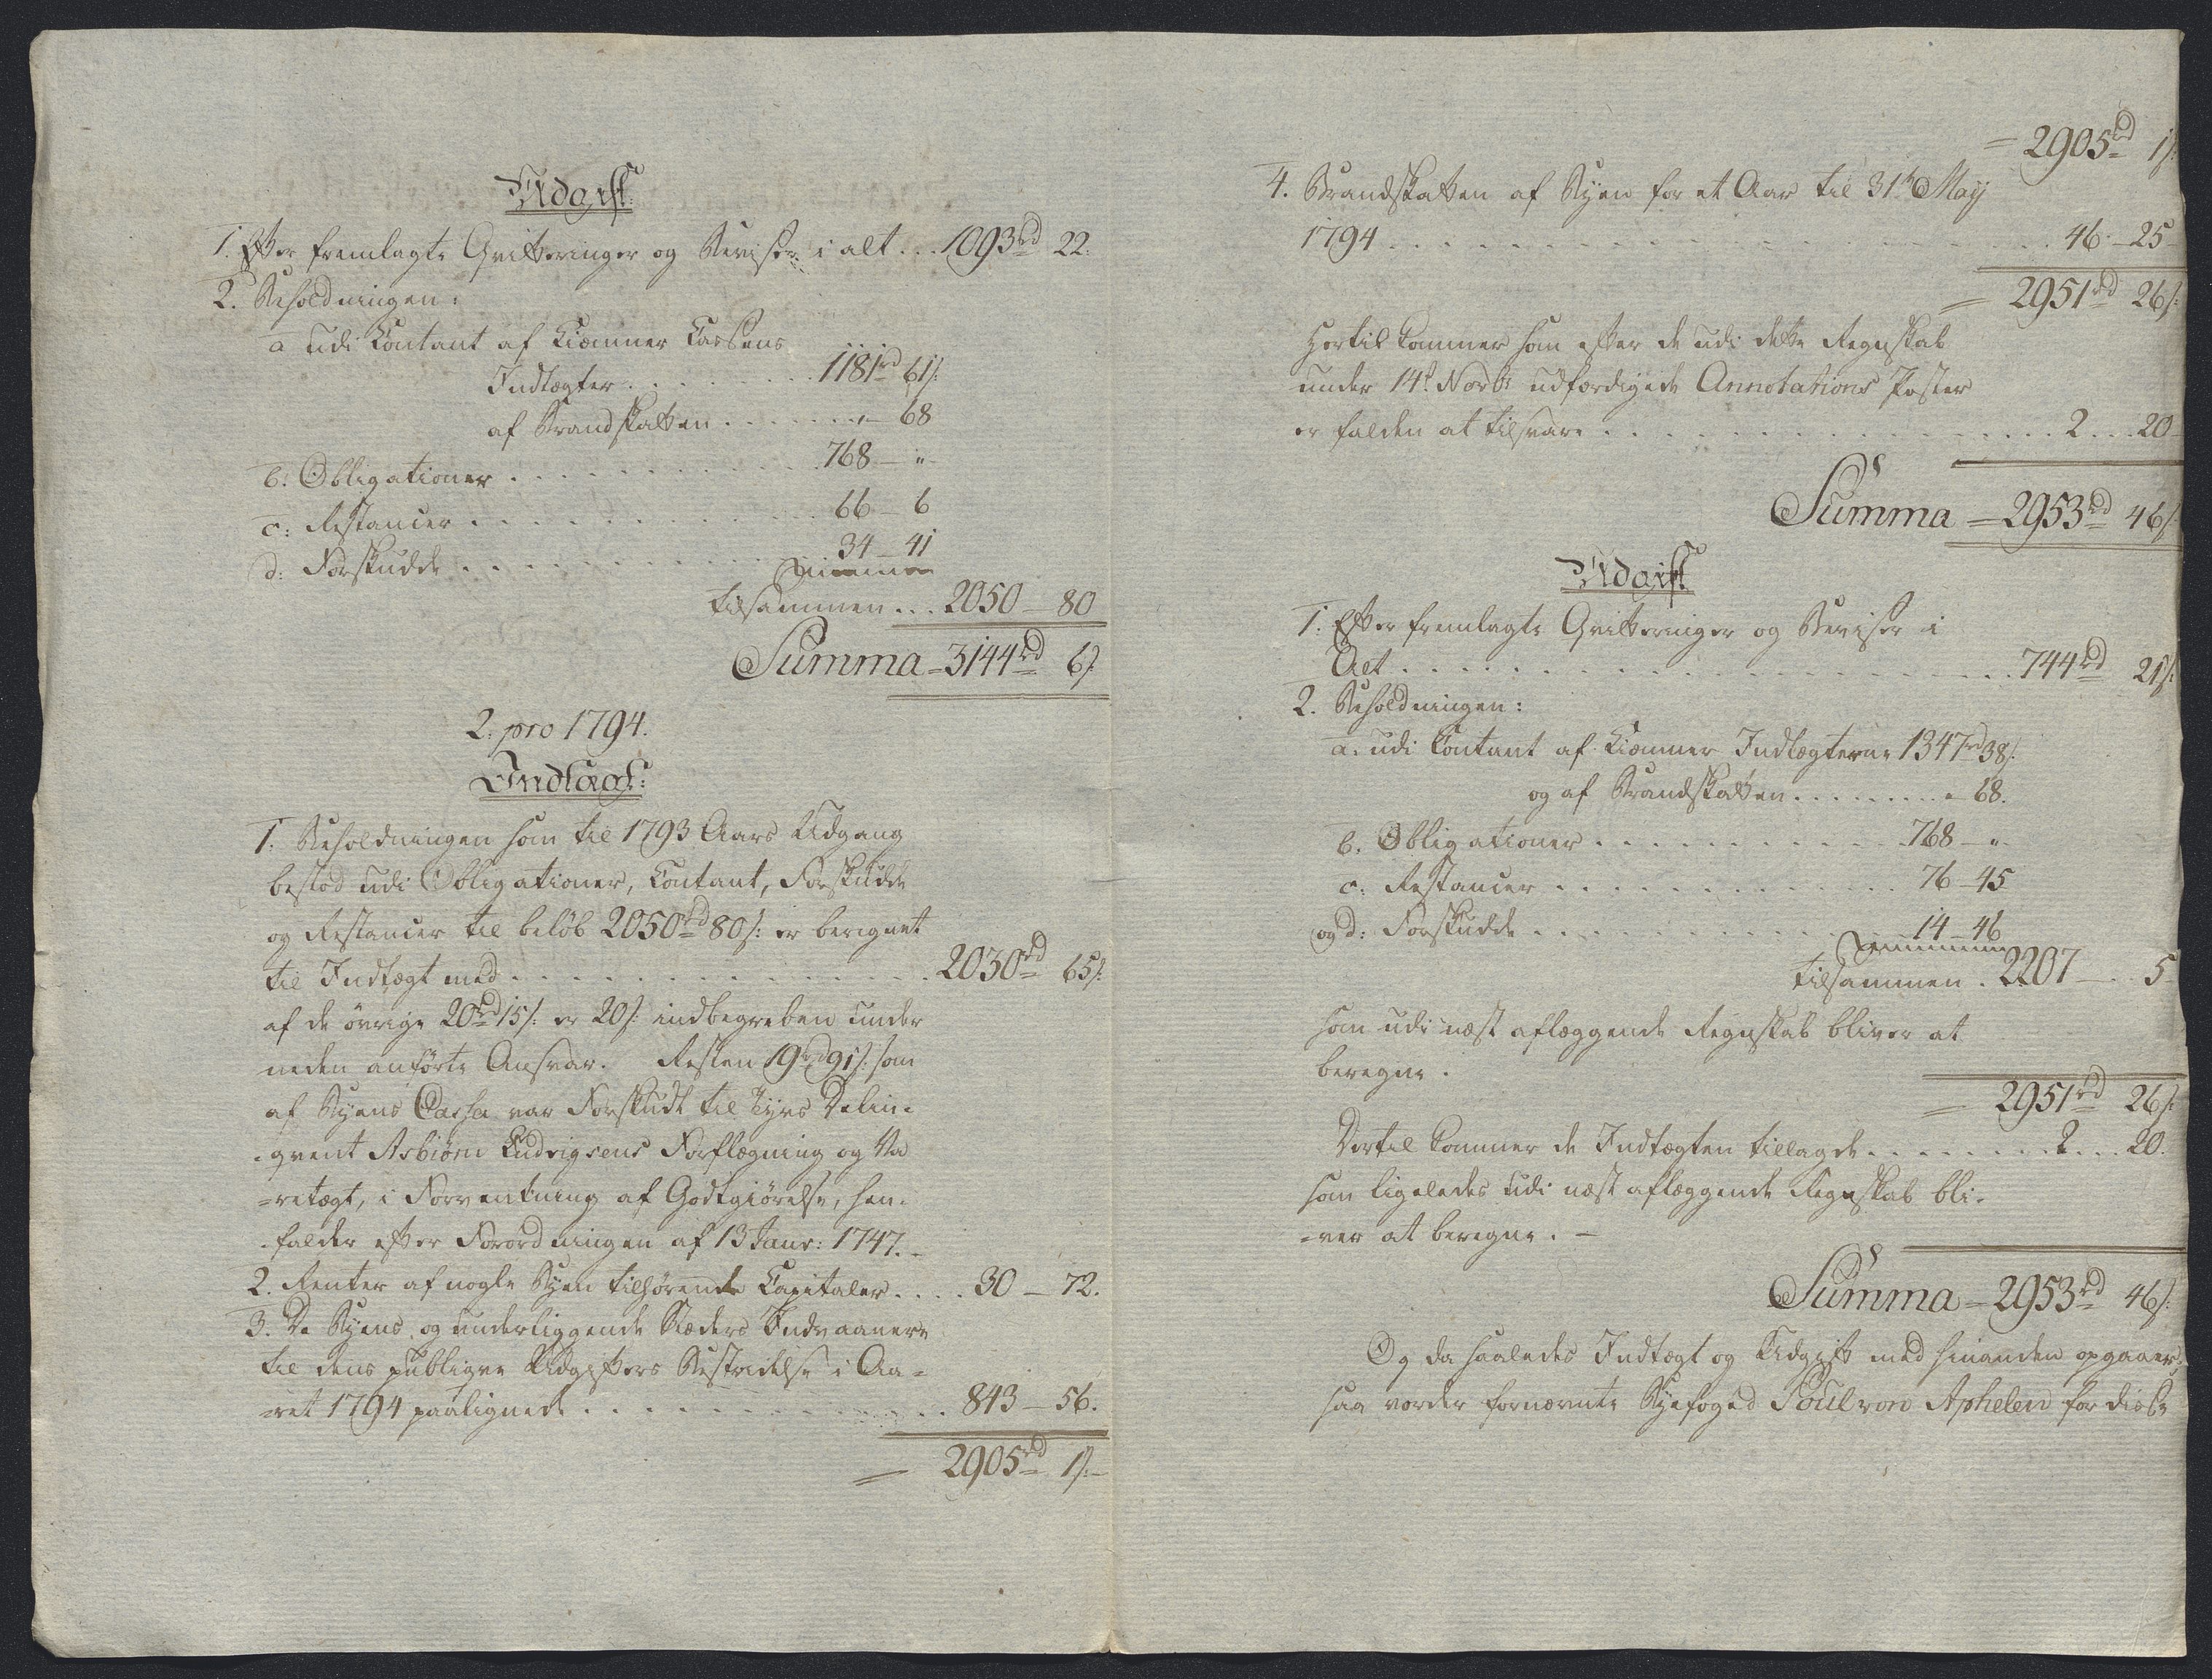 Udgift:
1. Efter fremlagte Qvitteringer og Beviser i alt . . . 1093rd 22.
2. Beholdningen:
a udi Contant af Kiæmner Cassens
Indtægter . . . . . . . 1181rd 61s:
af Brandskatten . . . . . . „ – 68
b: Obligationer . . . . . . . . . . 768 – „ –
c: Restancer . . . . . . . . . . 66 – 6
d: Forskudde . . . . . . . . . . 34 – 41
tilsammen . . . 2050 – 80
Summa = 3144rd 6s
2. pro 1794.
Indtægt:
1. Beholdningen som til 1793 Aars Udgang
bestod udi Obligationer, Contant, Forskudde
og Restancer til beløb 2050rd 80s: er beregnet
til Indtægt med . . . . . . . . . . . . . 2030rd 65s:
af de øvrige 20rd 15s: er 20s: indbegreben under
neden anførte Ansvar. Resten 19rd 91s: som
af Byens Cassa var Forskudt til Tyvs Delin-
-qvent Asbiørn Ludvigsens Forflægning og Va
=retægt, i Forventning af Godtgiørelse, hen-
-falder efter Forordningen af 13 Janr: 1747. –
2. Renter af nogle Byen tilhørende Capitaler . . . . 30 – 72.
3. De Byens og underliggende Stæders Indvaanere
til dens publique Udgifters Bestridelse i Aa=
=ret 1794 paalignede . . . . . . . . . . . . . 843 – 56.
= 2905rd 1s: –
= 2905rd 1s:
4. Brandskatten af Byen for et Aar til 31te May
1794 . . . . . . . . . . . . . . . . . . . . 46 – 25 –
= 2951rd 26s:
Hertil kommer som efter de udi dette Regnskab
under 14de Novbr udfærdigede Annotations Poster
er falden at tilsvare . . . . . . . . . . . . . . . . 2 . . . 20 –
Summa = 2953rd 46s
Udgift
1. Efter fremlagte Qvitteringer og Beviser i
Alt . . . . . . . . . . . . . . . . . . . . 744rd 21s:
2. Beholdningen:
a. udi Contant af Kiæmner Indtægterne 1347rd 38s:
og af Brandskatten . . . . . . . . „ 68.
b. Obligationer . . . . . . . . . . . 768 – „ –
c. Restancer . . . . . . . . . . . . 76 – 45
og d: Forskudde . . . . . . . . . . . . 14 – 46
tilsammen . 2207 – . . 5 –
som udi næst aflæggende Regnskab bliver at
beregne.
= 2951rd 26s:
Dertil kommer de Indtægten tillagde . . . . . . . . 2 . . . 20.
som ligeledes udi næst aflæggende Regnskab bli-
-ver at beregne. –
Summa = 2953rd 46s:
Og da saaledes Indtægt og Udgift med hinanden opgaaer,
saa vorder fornævnte Byefoged Poul von Aphelen for disse